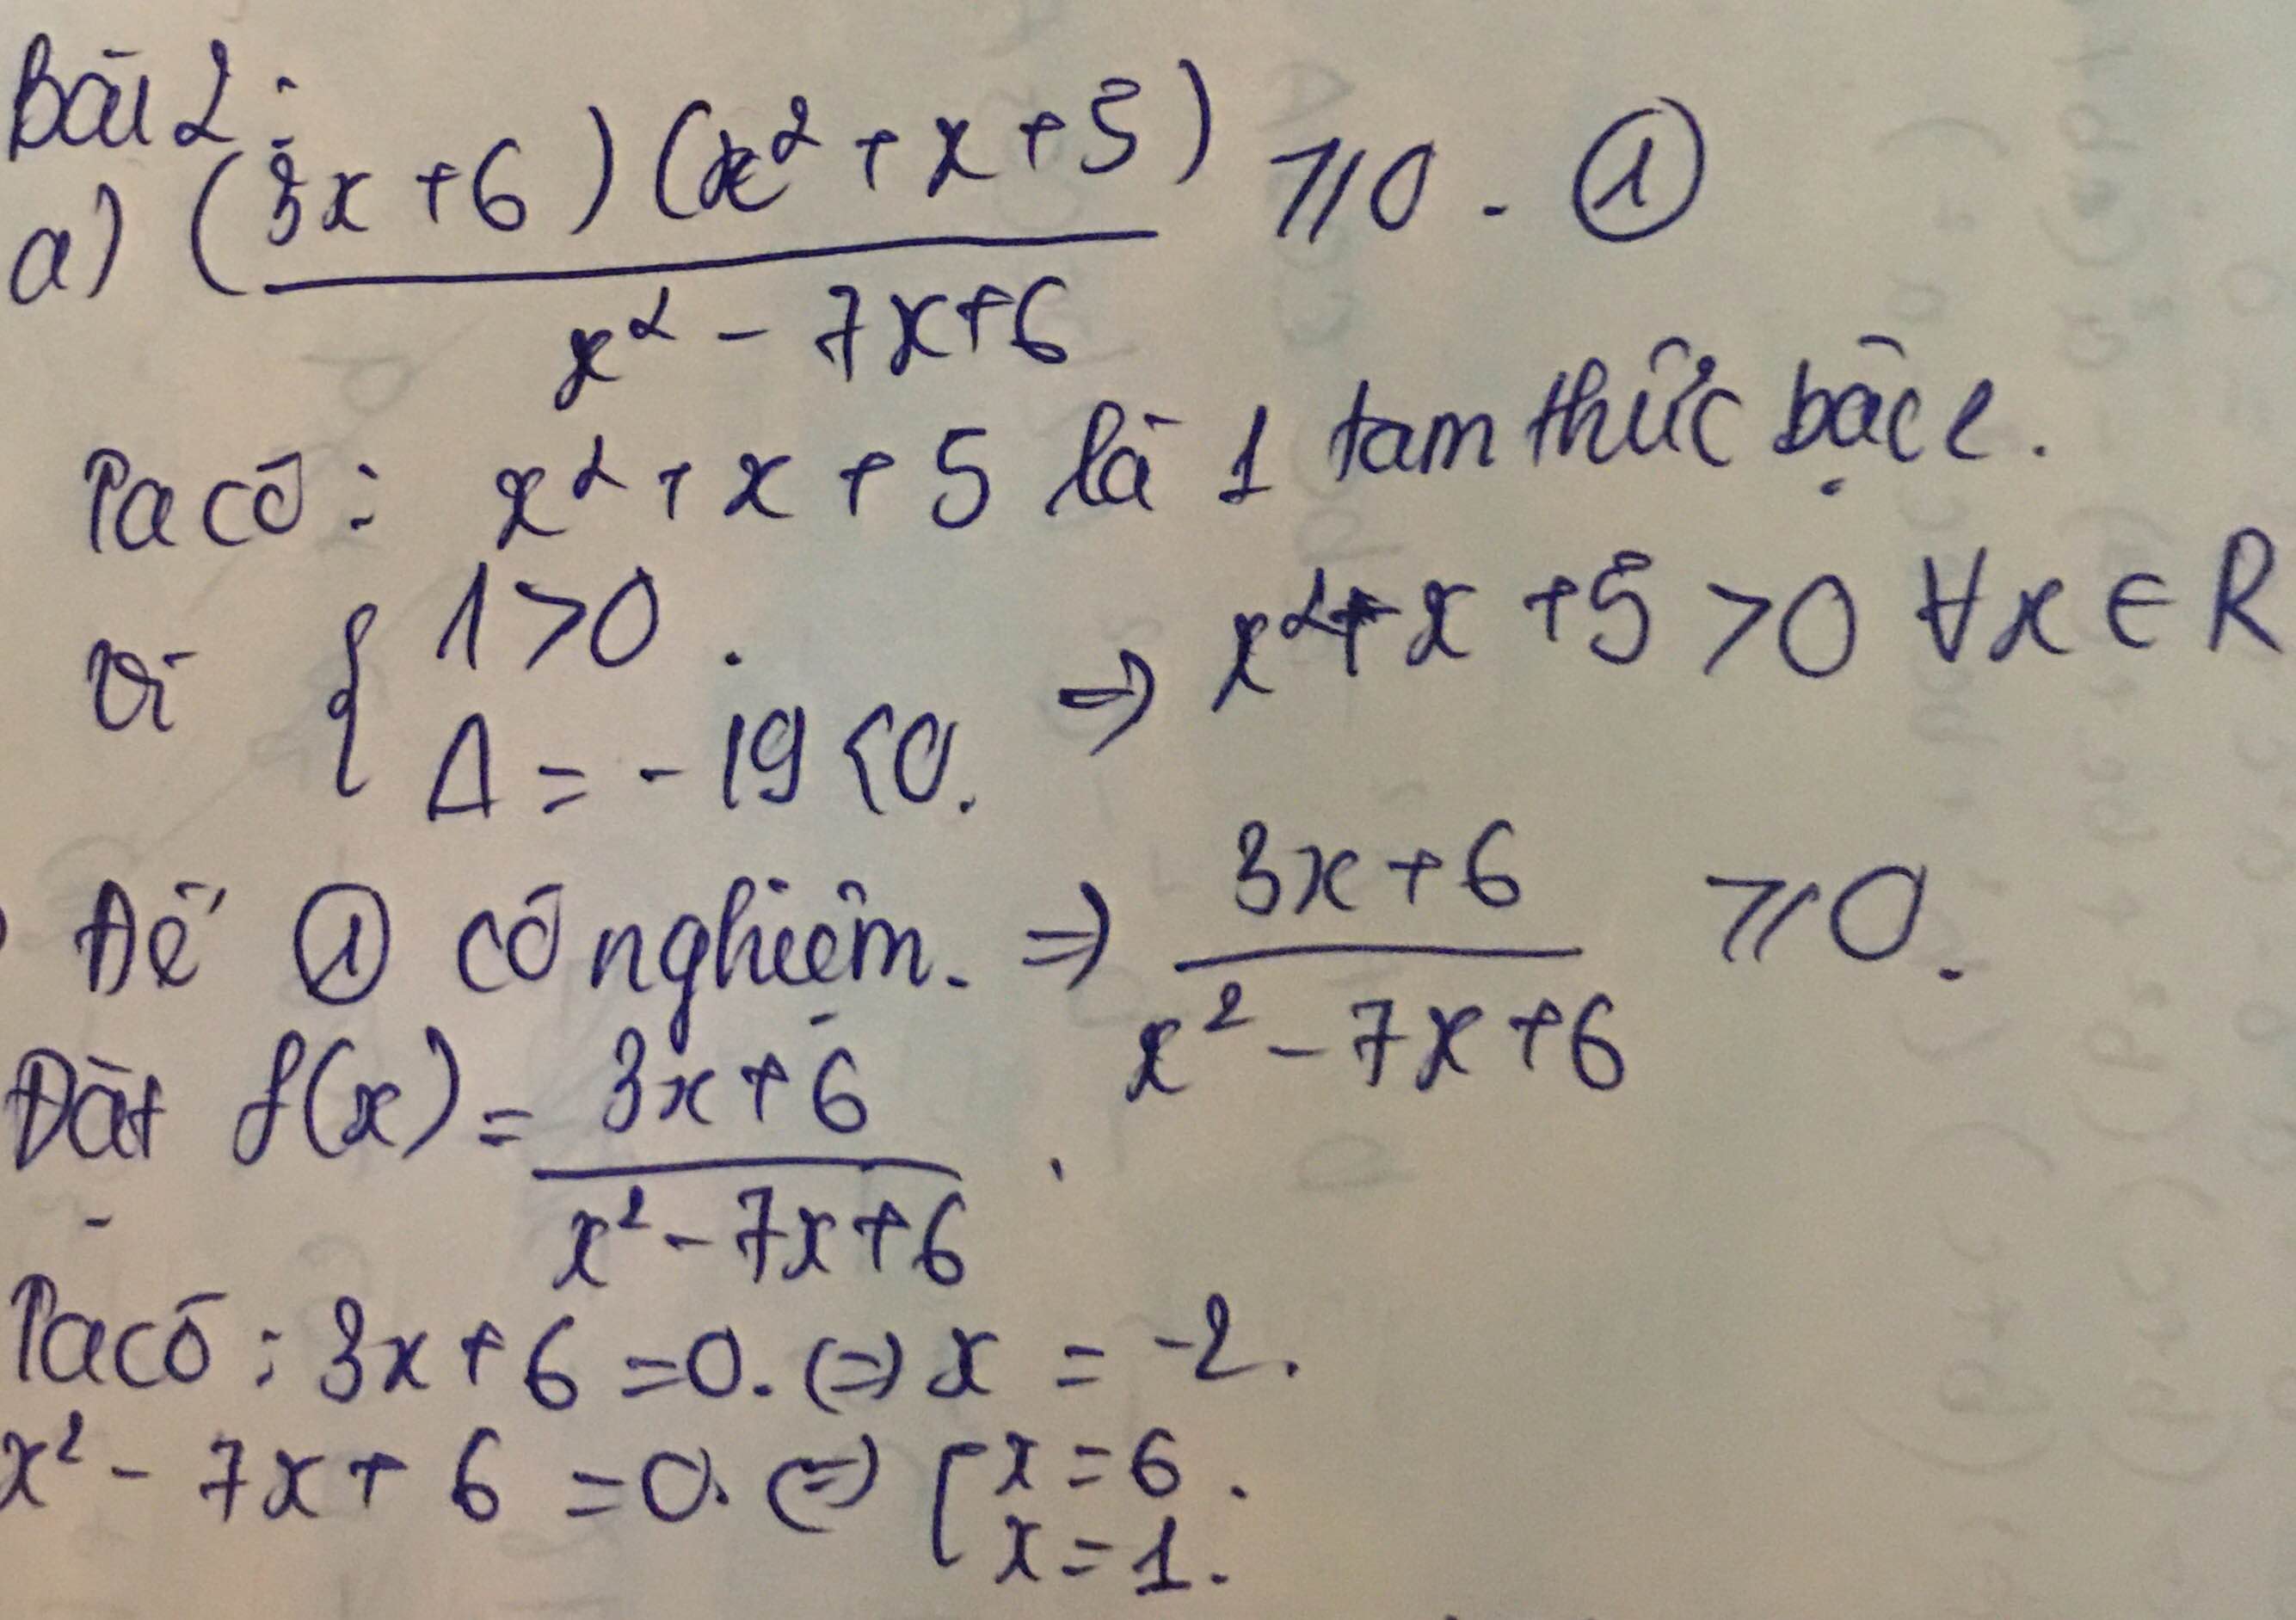 Bài 2:
a) (3x + 6)(x² + x + 5) / (x² - 7x + 6) ⩾ 0. ①
Ta có: x² + x + 5 là 1 tam thức bậc 2.
Vì { 1 > 0. Δ = -19 < 0. ⇒ x² + x + 5 > 0 ∀x ∈ R
Để ① có nghiệm. ⇒ (3x + 6) / (x² - 7x + 6) ⩾ 0.
Đặt f(x) = (3x + 6) / (x² - 7x + 6).
Ta có: 3x + 6 = 0. ⇔ x = -2.
x² - 7x + 6 = 0. ⇔ [ x = 6. x = 1.